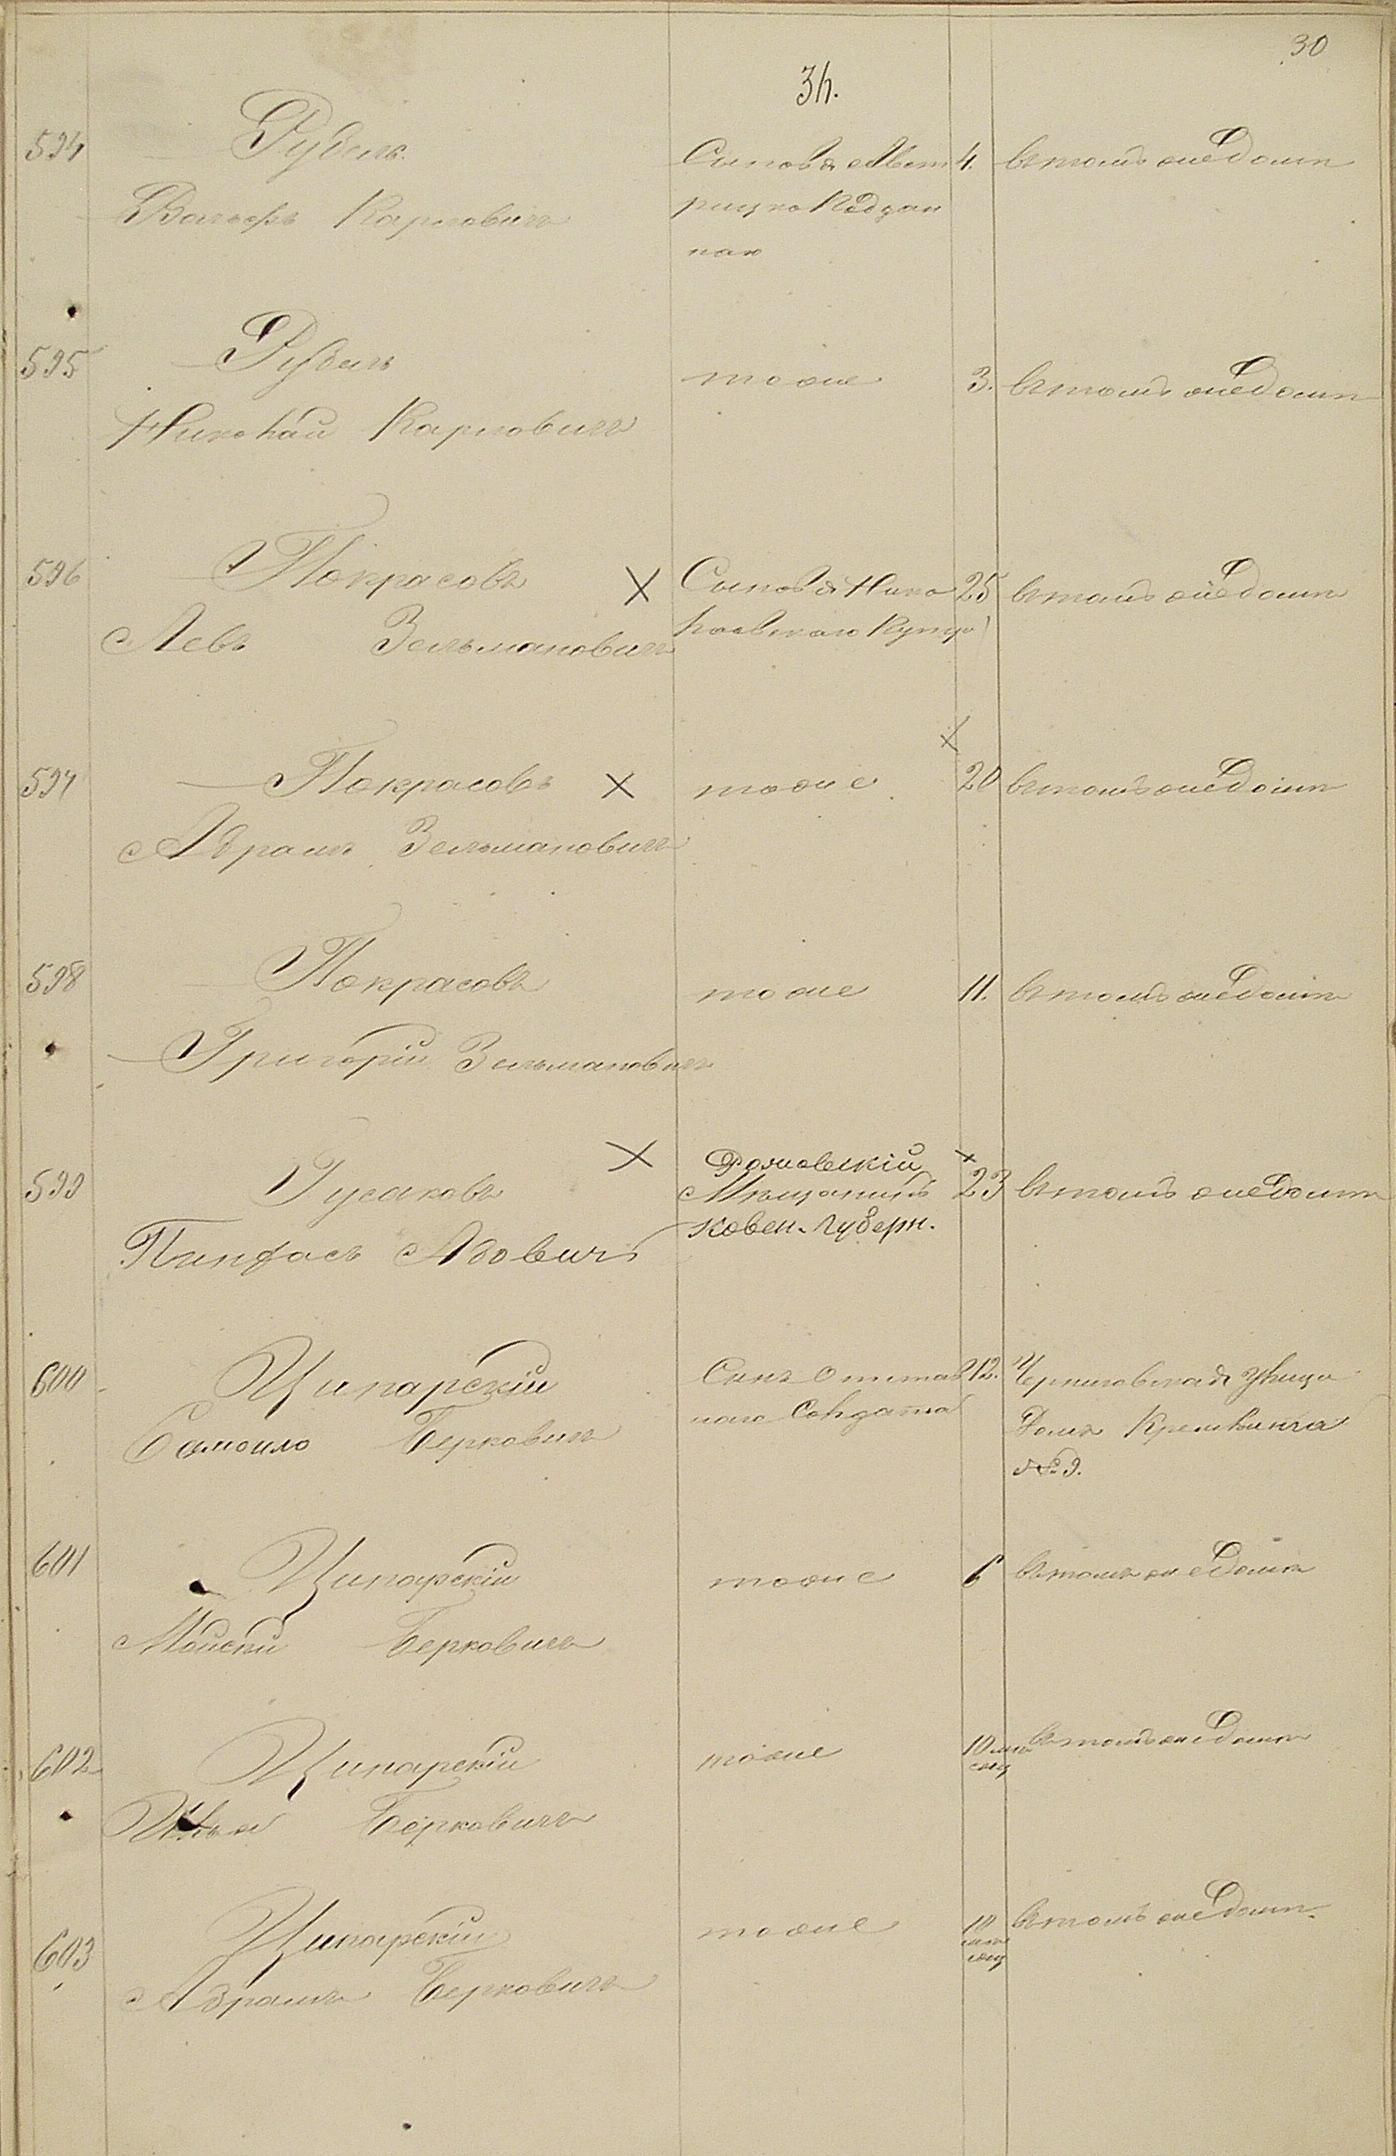 30
Зһ.
594 Рубель Сыновья Авст 4. въ томъ же домѣ
Вольфъ Карловичъ рицко Поддан
наго
595 Рубель тоже 3. въ томъ же домѣ
Николай Карловичъ
596 Покрасовъ X Сыновья Нико 25 въ томъ же домѣ
Левъ Зельмановичъ лаевского Купца
597 Покрасовъ X тоже X 20 въ томъ же домѣ
Абрамъ Зельмановичъ
598 Покрасовъ тоже 11. въ томъ же домѣ
Григорій Зельмановичъ
X
599 Гусаковъ Мѣщанинъ 23 въ томъ же домѣ
Пинфасъ Ковен. Губерн.
600 Ципарскій Сынъ Отстав 12. Черниговская Улица
Самоило Берковичъ наго Солдата Домъ
№ 9.
601 Ципарскій тоже 6 въ томъ же домѣ
Мойсей Берковичъ
602 Ципарскій тоже 10 мѣ сяц въ томъ же домѣ
Берковичъ
603 Ципарскій тоже 10 мѣ сяц въ томъ же домѣ
Абрамъ Берковичъ